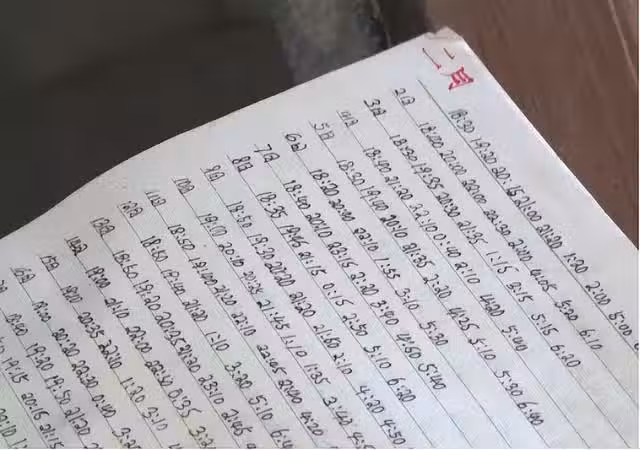 二月
18:30 19:20 20:15 21:00 21:20 1:20 2:00 5:00
2日 18:00 20:00 22:00 22:30 2:00 4:05 5:20 6:10
3日 18:20 19:35 20:30 21:35 1:15 3:15 5:15 6:20
4日 18:00 21:20 22:10 0:40 2:10 4:20 5:40
5日 18:30 19:40 20:40 21:35 2:20 4:05 5:10 5:30 6:40
6日 18:20 20:00 22:10 1:55 3:10 5:20
7日 18:40 20:10 22:15 2:20 3:40 4:50 5:40
8日 18:35 19:45 21:15 0:15 2:50 5:10 6:20
9日 18:50 19:50 20:20 21:20 21:50 2:10 4:20 4:50
10日 19:00 20:10 20:35 21:45 1:10 1:35 3:40
11日 18:50 19:40 21:20 22:10 22:45 4:20
12日 18:50 19:40 21:20 1:10 3:20 5:10
13日 18:50 19:20 20:25 21:20 23:10
14日 19:00 21:10 22:00 22:30 0:35
15日 19:00 20:35 22:40 1:20 2:10
16日 19:00 20:20 22:20 0:40
19:20 19:50 21:20
19:15 20:15 21:15